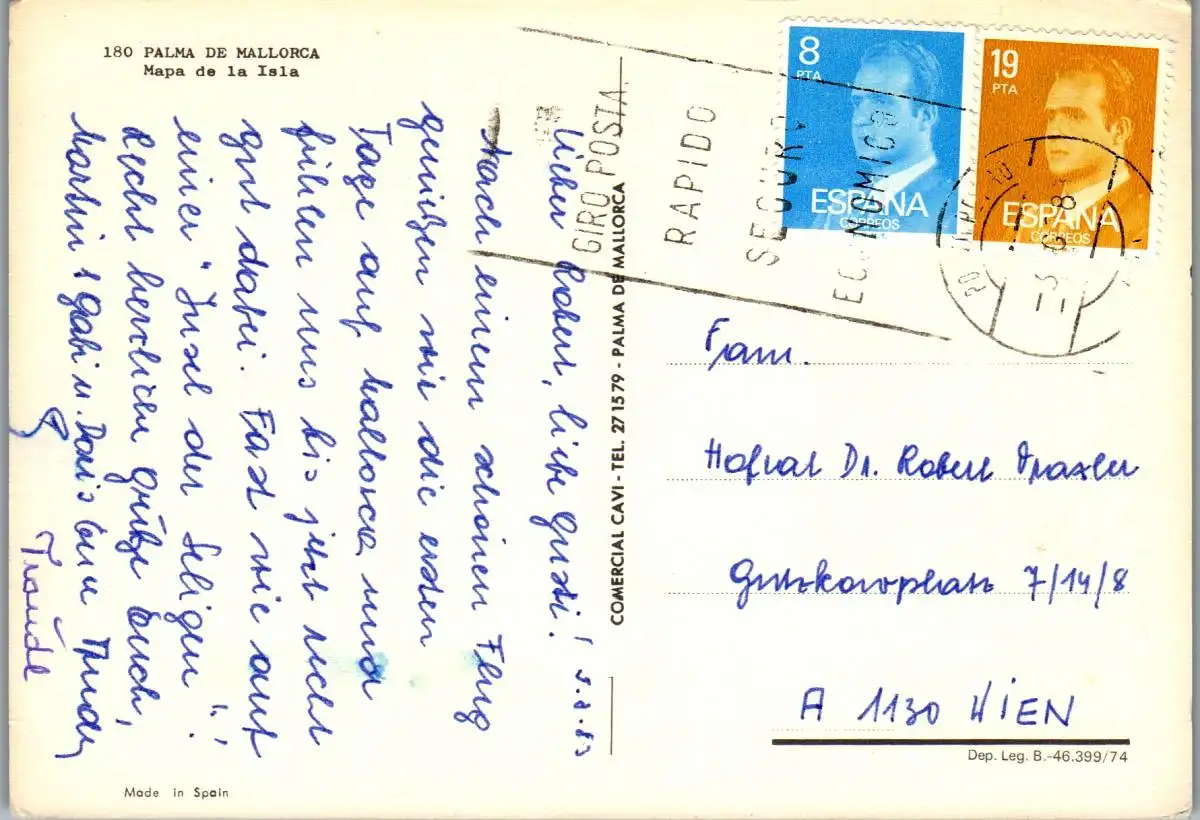 180 PALMA DE MALLORCA
Mapa de la Isla
Lieber Robert, liebe Gusti! 5.8.83
Nach einem schönen Flug
genießen wir die ersten
Tage auf Mallorca und
fühlen uns bis jetzt recht
gut dabei. Fast wie auf
einer "Insel der Seligen"!
Recht herzliche Grüße Euch,
Martin, Gabi u. Doris Eure
Traudl
COMERCIAL CAVI - TEL. 271579 - PALMA DE MALLORCA
GIRO POSTA
RAPIDO
SEGURO
ECONOMICO
8
PTA
ESPAÑA
CORREOS
19
PTA
ESPAÑA
CORREOS
Fam.
Hofrat Dr. Robert Draxler
Gutzkowplatz 7/14/8
A 1130 WIEN
Dep. Leg. B.-46.399/74
Made in Spain